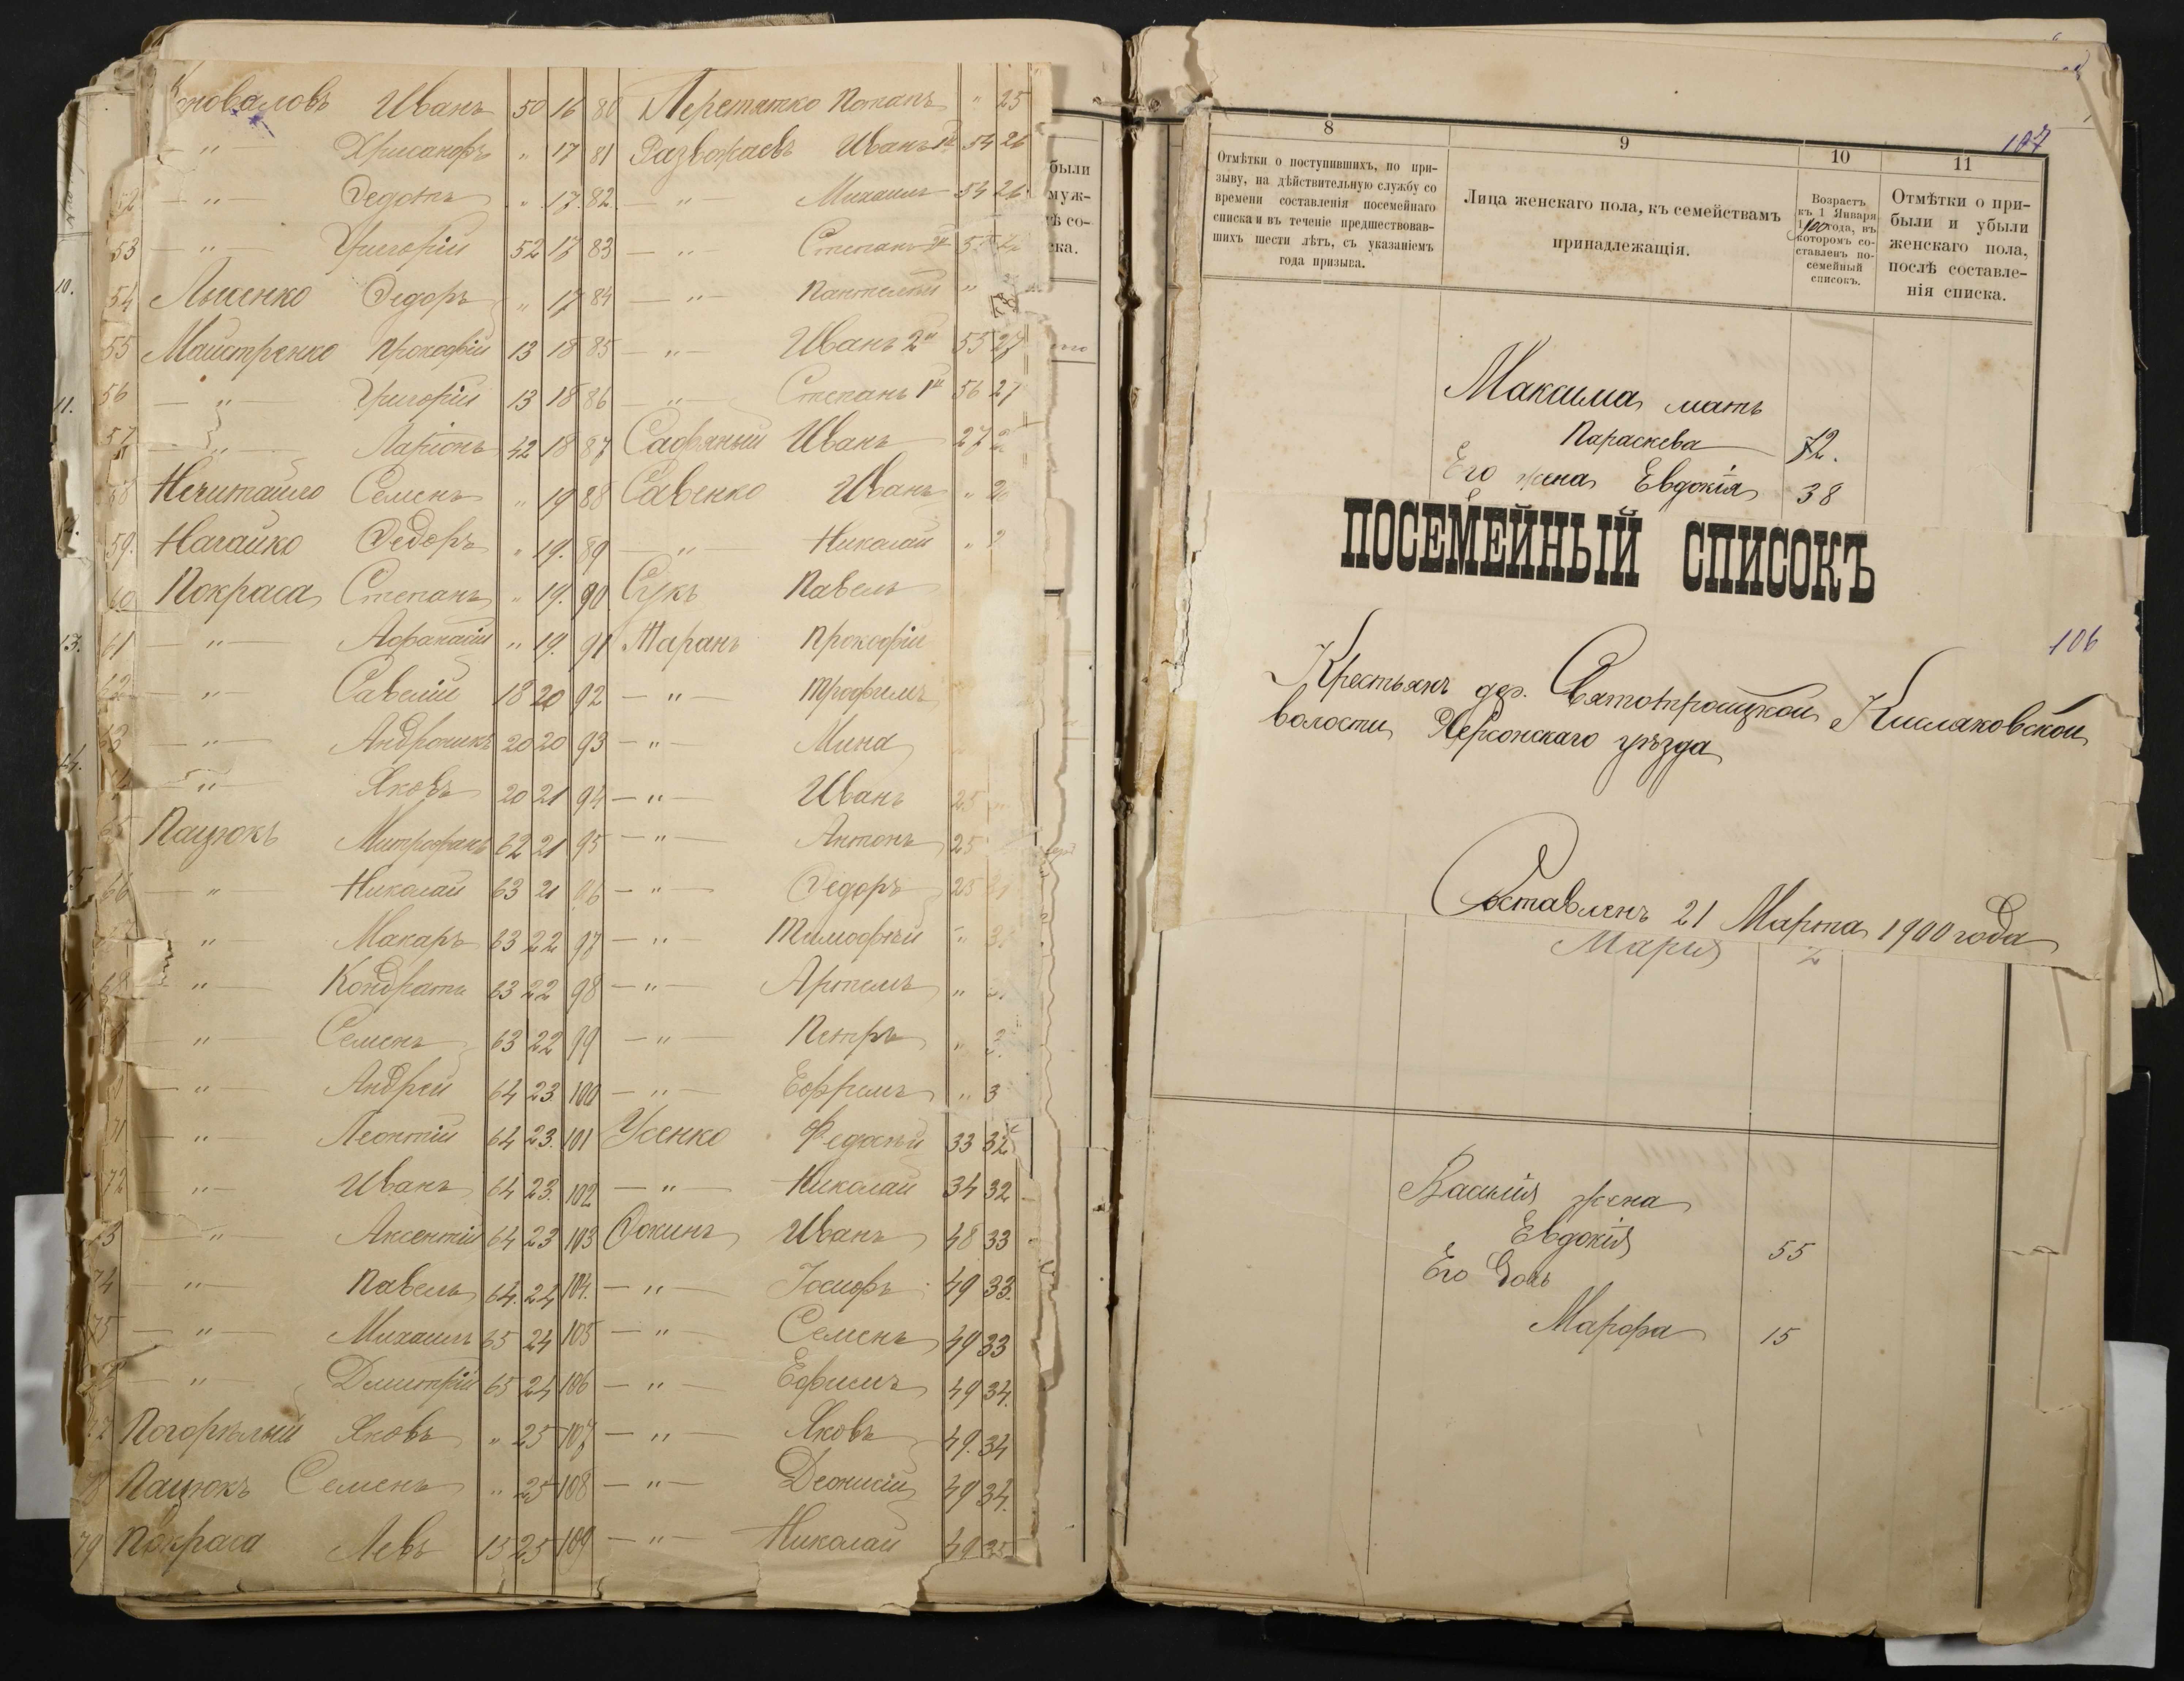 Коноваловъ Иванъ 50 16 80 Перетятко Потапъ " 25
— " — Хрисанфъ " 17 81 Развожаевъ Иванъ 1й 54 26
52 — " — Федотъ " 17. 82. — " — Михаилъ 54 26
53 — " — Григорій 52 17 83 — " — Степанъ 2й
54 Лысенко Федоръ " 17 84 — " — Пантелей "
55 Майстренко Прокофій 13 18 85 — " — Иванъ 2й 55 27
56 — " — Григорій 13 18 86 — " — Степанъ 1й 56 27
57 — " — Ларіонъ 42 18 87 Сафьяный Иванъ 27
58 Нечитайло Семенъ " 19 88 Савенко Иванъ "
59. Нагайко Федоръ " 19. 89 — " — Николай "
60 Покраса Степанъ " 19. 90 Сукъ Павелъ
61 — " — Афанасій " 19. 91 Таранъ Прокофій
62 — " — Савелій 18 20 92 — " — Трофимъ
63 — " — Андроникъ 20 20 93 — " — Мина
— " — Яковъ 20 21 94 — " — Иванъ 25
65 Пацюкъ Митрофанъ 62 21 95 — " — Антонъ 25
66 — " — Николай 63 21 96 — " — Федоръ 25 31
— " — Макаръ 63 22 97 — " — Тимофей "
68 — " — Кондратъ 63 22 98 — " — Артемъ "
— " — Семенъ 63 22 99 — " — Петръ "
— " — Андрей 64 23 100 — " — Ефремъ " 3
71 — " — Леонтій 64 23. 101 Усенко Федосѣй 33 32
72 — " — Иванъ 64 23. 102 — " — Николай 34 32
73 — " — Аксентій 64 23 103 Фокинъ Иванъ 48 33
74 — " — Павелъ 64. 24 104. — " — Іосифъ 49 33.
75 — " — Михаилъ 65 24 105 — " — Семенъ 49 33
— " — Дмитрій 65 24 106 — " — Ефимъ 49 34.
77 Погорѣлый Яковъ " 25 107 — " — Яковъ 49. 34
78 Пацюкъ Семенъ " 25 108 — " — Деонисій 49 34.
79 Покраса Левъ 15 25 109 — " — Николай 49 35
10.
11.
13.
14.
были
муж-
ска.
107
8
9
10
11
Отмѣтки о поступившихъ, по при-
зыву, на дѣйствительную службу со
времени составленія посемейнаго
списка и въ теченіе предшествовав-
шихъ шести лѣтъ, съ указаніемъ
года призыва.
Лица женскаго пола, къ семействамъ
принадлежащія.
Возрастъ
къ 1 Января
1900 года, въ
которомъ со-
ставленъ по-
семейный
списокъ.
Отмѣтки о при-
были и убыли
женскаго пола,
послѣ составле-
нія списка.
Максима мать
Параскева 72.
Его жена Евдокія 38
ПОСЕМЕЙНЫЙ СПИСОКЪ
106
Крестьянъ дер. Святотроицкой Кисляковской
волости Херсонскаго уѣзда
Составленъ 21 Марта 1900 года
Марія 2
Василія жена
Евдокія 55
Его дочь
Марфа 15